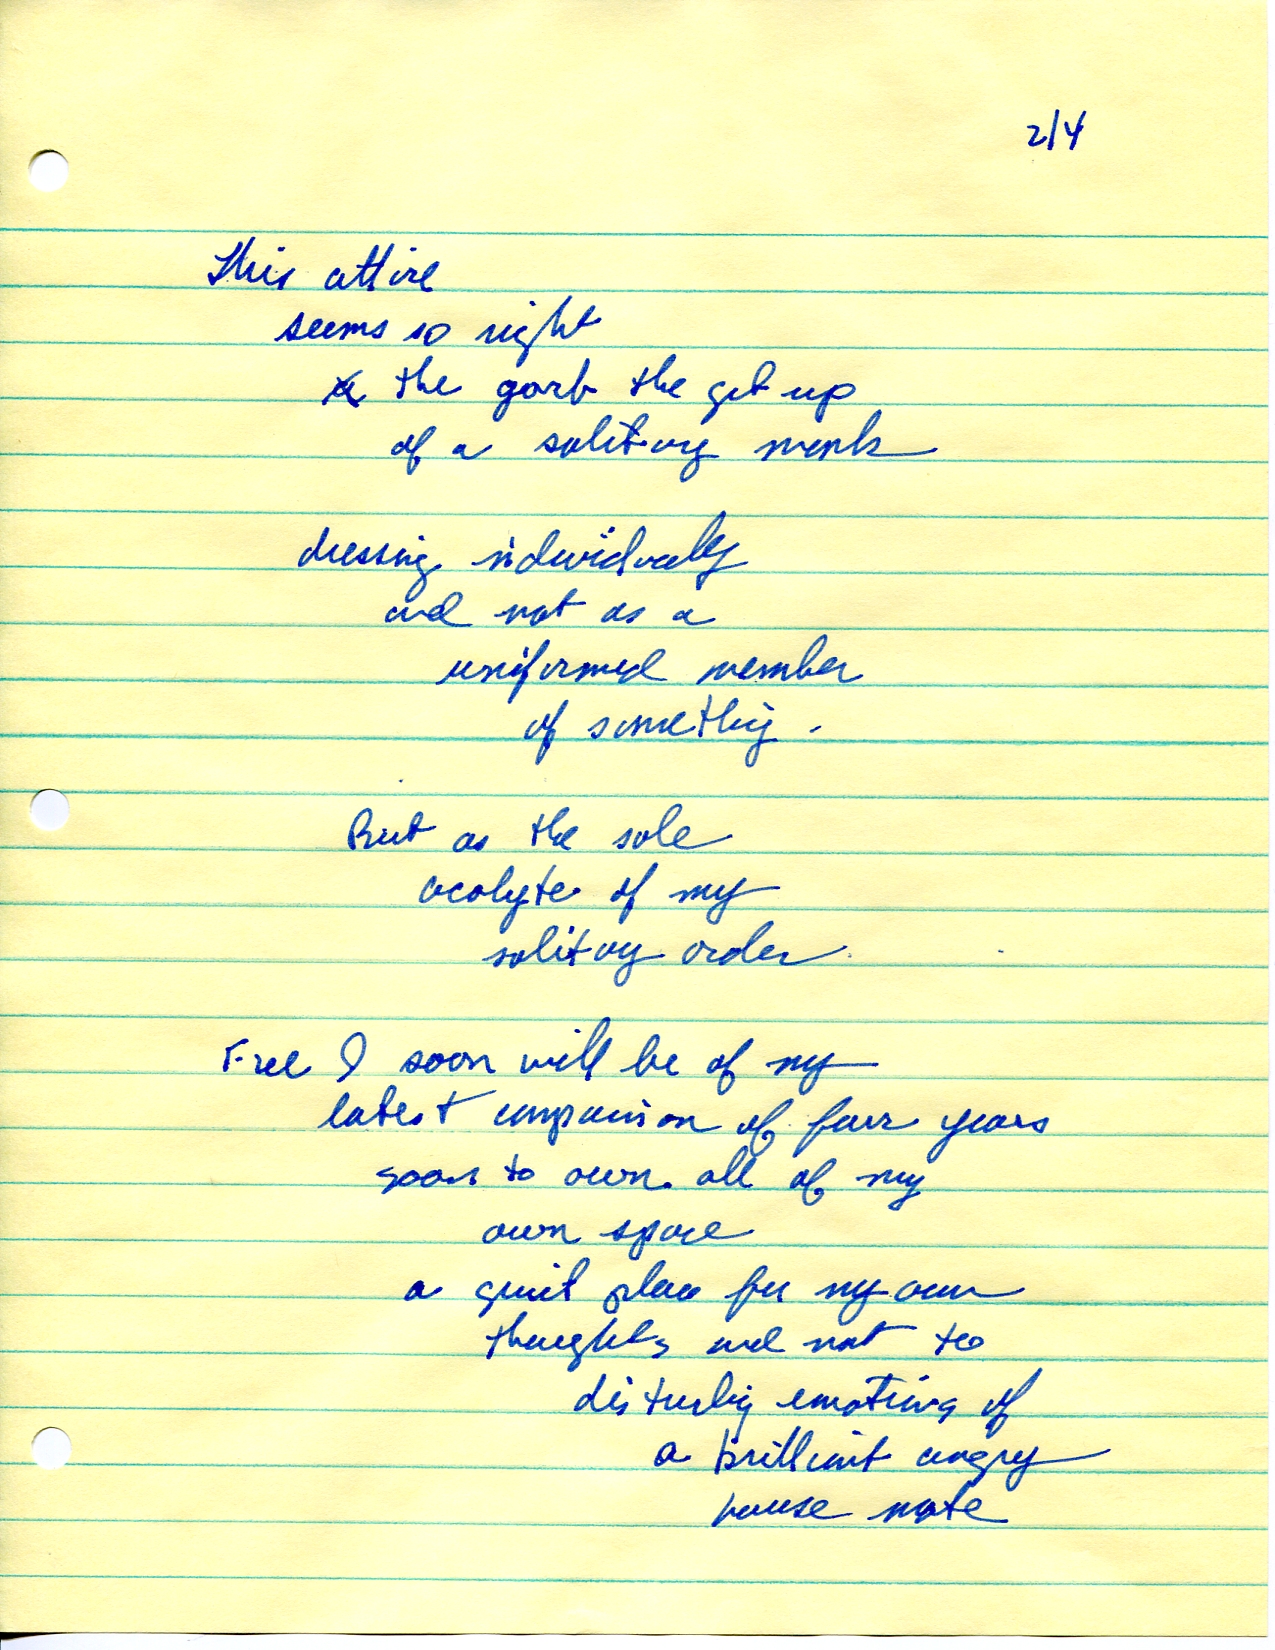 2/4
This attire
seems so right
the garb the get up
of a solitary monk
dressing individually
and not as a
uniformed member
of something.
But as the sole
acolyte of my
solitary order.
Free I soon will be of my
latest companion of four years
soon to own all of my
own space
a quiet place for my own
thoughts and not to
disturbing emoting of
a brilliant angry
house mate